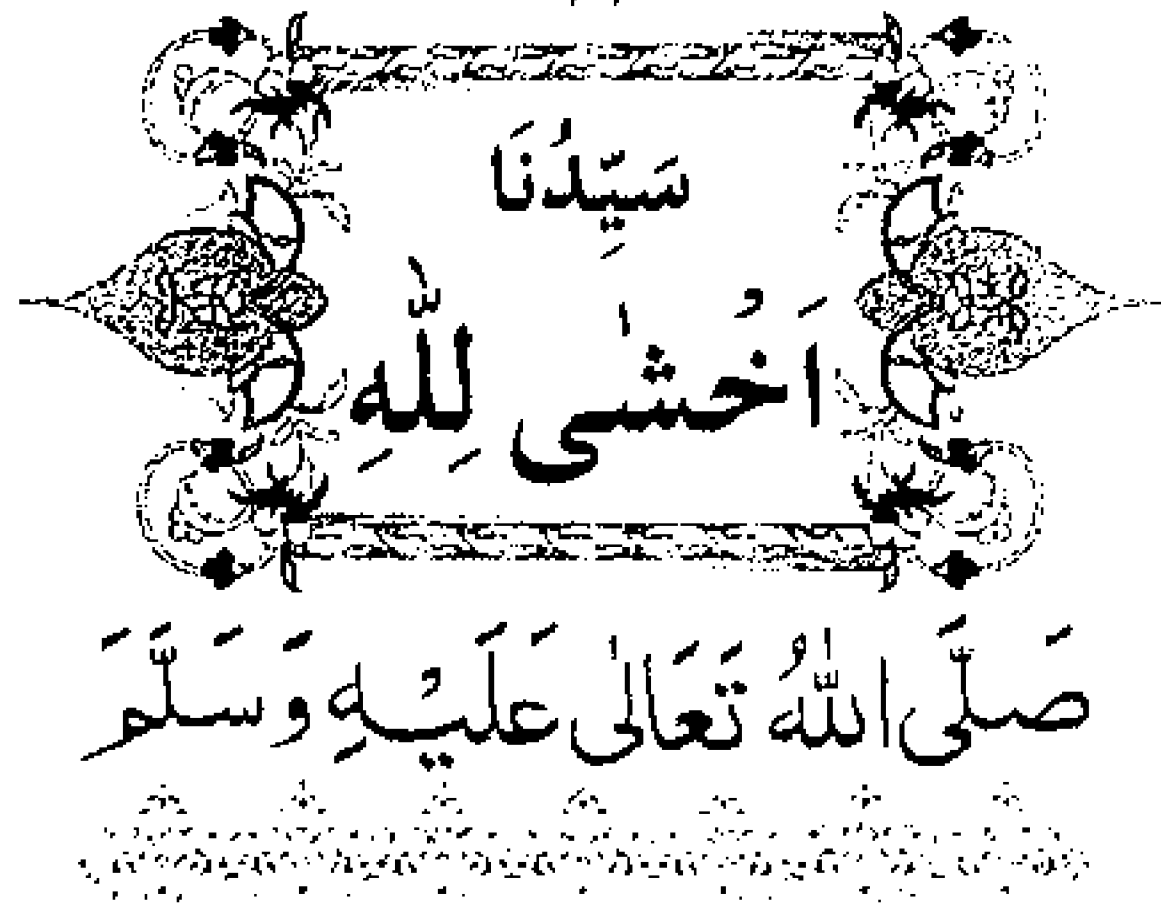 سَيِّدُنَا
اَخْشٰى لِلّٰهِ
صَلَّى اللّٰهُ تَعَالٰى عَلَيْهِ وَسَلَّمَ